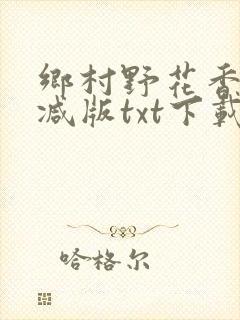 鄉村野花香
减版txt下載
哈格尔